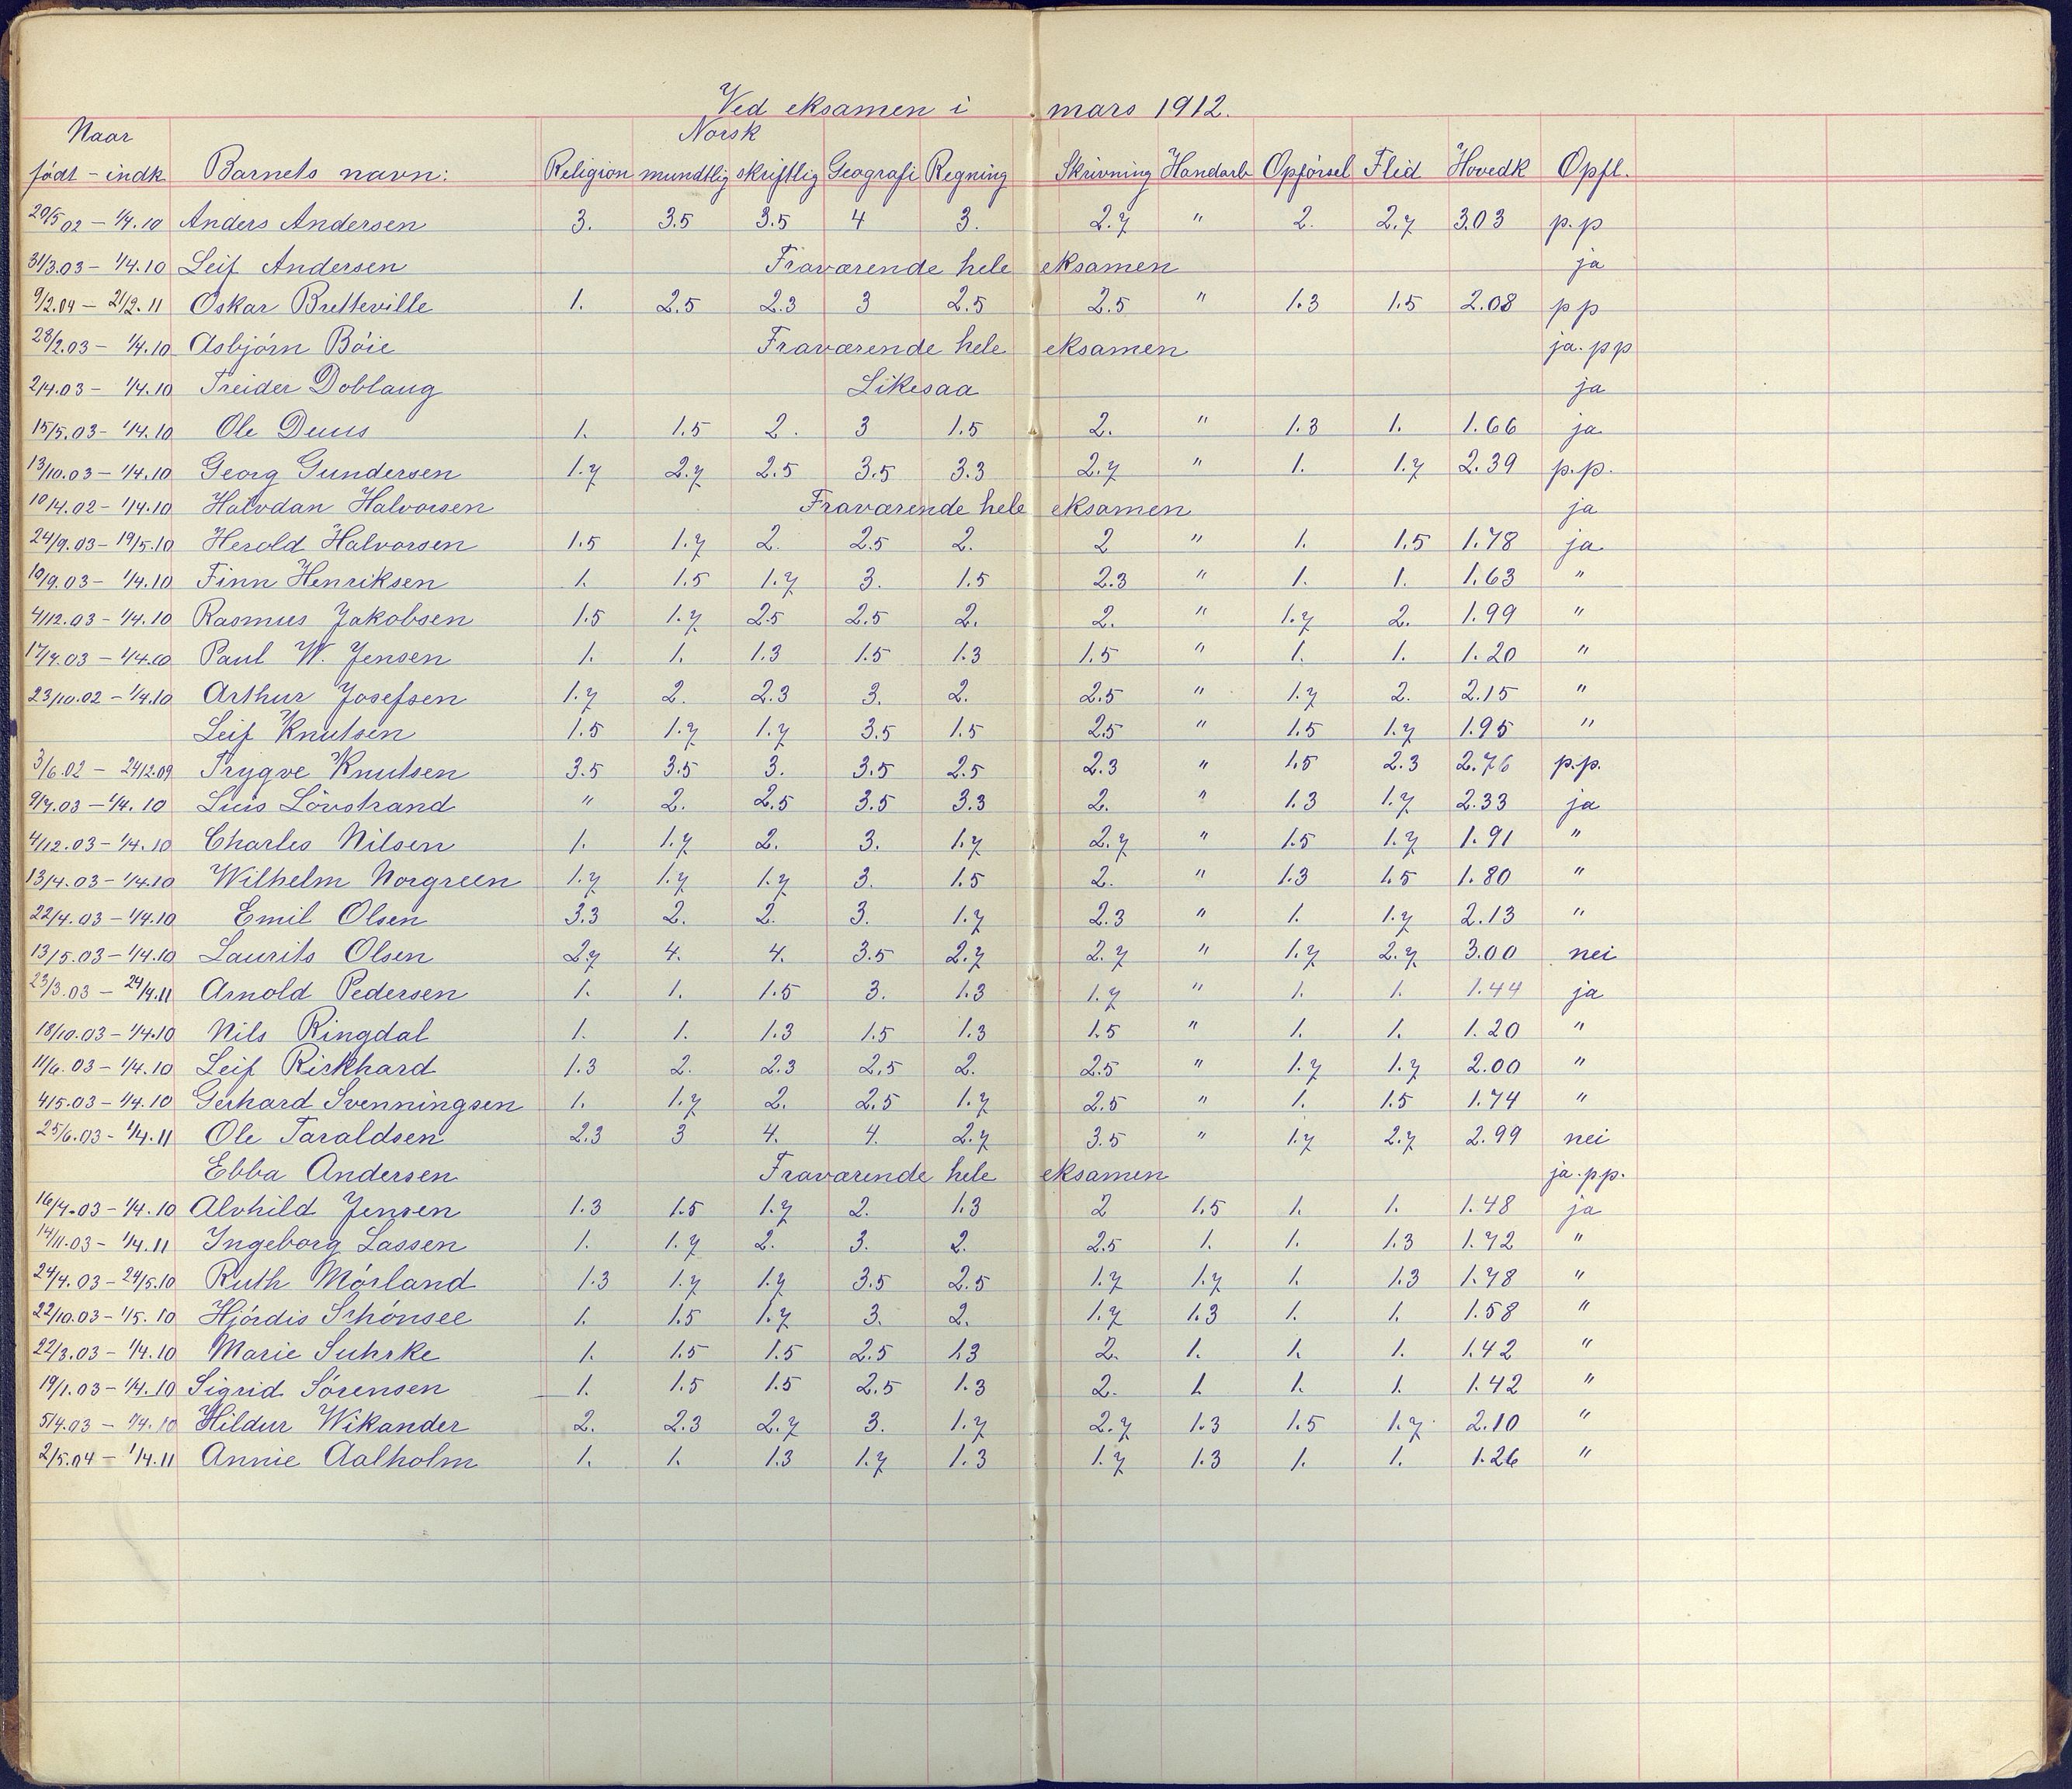 Ved eksamen i mars 1912.
Naar Norsk
født - indk Barnets navn: Religion mundtlig skriftlig Geografi Regning Skrivning Handarb Opførsel Flid Hovedk Opfl.
20/5 02 - 1/4.10 Anders Andersen 3. 3.5 3.5 4 3. 2.7 " 2. 2.7 3.03 p.p
31/3.03 - 1/4.10 Leif Andersen Fraværende hele eksamen ja
9/2.04 - 21/2.11 Oskar Bretteville 1. 2.5 2.3 3 2.5 2.5 " 1.3 1.5 2.08 p p
28/2.03 - 1/4.10 Asbjørn Bøie Fraværende hele eksamen ja. p p
2/4.03 - 1/4.10 Treider Doblaug Likesaa ja
15/5.03 - 1/4.10 Ole Duus 1. 1.5 2. 3 1.5 2. " 1.3 1. 1.66 ja
13/10.03 - 1/4.10 Georg Gundersen 1.7 2.7 2.5 3.5 3.3 2.7 " 1. 1.7 2.39 p.p.
10/4.02 - 1/4.10 Halvdan Halvorsen Fraværende hele eksamen ja
24/9.03 - 19/5.10 Herold Halvorsen 1.5 1.7 2. 2.5 2. 2 " 1. 1.5 1.78 ja
10/9.03 - 1/4.10 Finn Henriksen 1. 1.5 1.7 3. 1.5 2.3 " 1. 1. 1.63 "
4/12.03 - 1/4.10 Rasmus Jakobsen 1.5 1.7 2.5 2.5 2. 2. " 1.7 2. 1.99 "
17/7.03 - 1/4.10 Paul W. Jensen 1. 1. 1.3 1.5 1.3 1.5 " 1. 1. 1.20 "
23/10.02 - 1/4.10 Arthur Josefsen 1.7 2. 2.3 3. 2. 2.5 " 1.7 2. 2.15 "
Leif Knutsen 1.5 1.7 1.7 3.5 1.5 2.5 " 1.5 1.7 1.95 "
3/6.02 - 24/12.09 Trygve Knutsen 3.5 3.5 3. 3.5 2.5 2.3 " 1.5 2.3 2.76 p.p.
9/7.03 - 1/4.10 Luis Løvstrand " 2. 2.5 3.5 3.3 2. " 1.3 1.7 2.33 ja
4/12.03 - 1/4.10 Charles Nilsen 1. 1.7 2. 3. 1.7 2.7 " 1.5 1.7 1.91 "
13/4.03 - 1/4.10 Wilhelm Norgreen 1.7 1.7 1.7 3. 1.5 2. " 1.3 1.5 1.80 "
22/4.03 - 1/4.10 Emil Olsen 3.3 2. 2. 3. 1.7 2.3 " 1. 1.7 2.13 "
13/5.03 - 1/4.10 Laurits Olsen 2.7 4. 4. 3.5 2.7 2.7 " 1.7 2.7 3.00 nei
23/3.03 - 24/4.11 Arnold Pedersen 1. 1. 1.5 3. 1.3 1.7 " 1. 1. 1.44 ja
18/10.03 - 1/4.10 Nils Ringdal 1. 1. 1.3 1.5 1.3 1.5 " 1. 1. 1.20 "
11/6.03 - 1/4.10 Leif Rirkhard 1.3 2. 2.3 2.5 2. 2.5 " 1.7 1.7 2.00 "
4/5.03 - 1/4.10 Gerhard Svenningsen 1. 1.7 2. 2.5 1.7 2.5 " 1. 1.5 1.74 "
25/6.03 - 1/4.11 Ole Taraldsen 2.3 3 4. 4. 2.7 3.5 " 1.7 2.7 2.99 nei
Ebba Andersen Fraværende hele eksamen ja.p.p.
16/4.03 - 1/4.10 Alvhild Jensen 1.3 1.5 1.7 2. 1.3 2 1.5 1. 1. 1.48 ja
14/11.03 - 1/4.11 Ingeborg Lassen 1. 1.7 2. 3. 2. 2.5 1. 1. 1.3 1.72 "
24/4.03 - 24/5.10 Ruth Mørland 1.3 1.7 1.7 3.5 2.5 1.7 1.7 1. 1.3 1.78 "
22/10.03 - 1/5.10 Hjørdis Schønsee 1. 1.5 1.7 3. 2. 1.7 1.3 1. 1. 1.58 "
22/3.03 - 1/4.10 Marie Suhrke 1. 1.5 1.5 2.5 1.3 2. 1. 1. 1. 1.42 "
19/1.03 - 1/4.10 Sigrid Sørensen 1. 1.5 1.5 2.5 1.3 2. 1 1. 1. 1.42 "
5/4.03 - 1/4.10 Hildur Wikander 2. 2.3 2.7 3. 1.7 2.7 1.3 1.5 1.7 2.10 "
2/5.04 - 1/4.11 Annie Aalholm 1. 1. 1.3 1.7 1.3 1.7 1.3 1. 1. 1.26 "